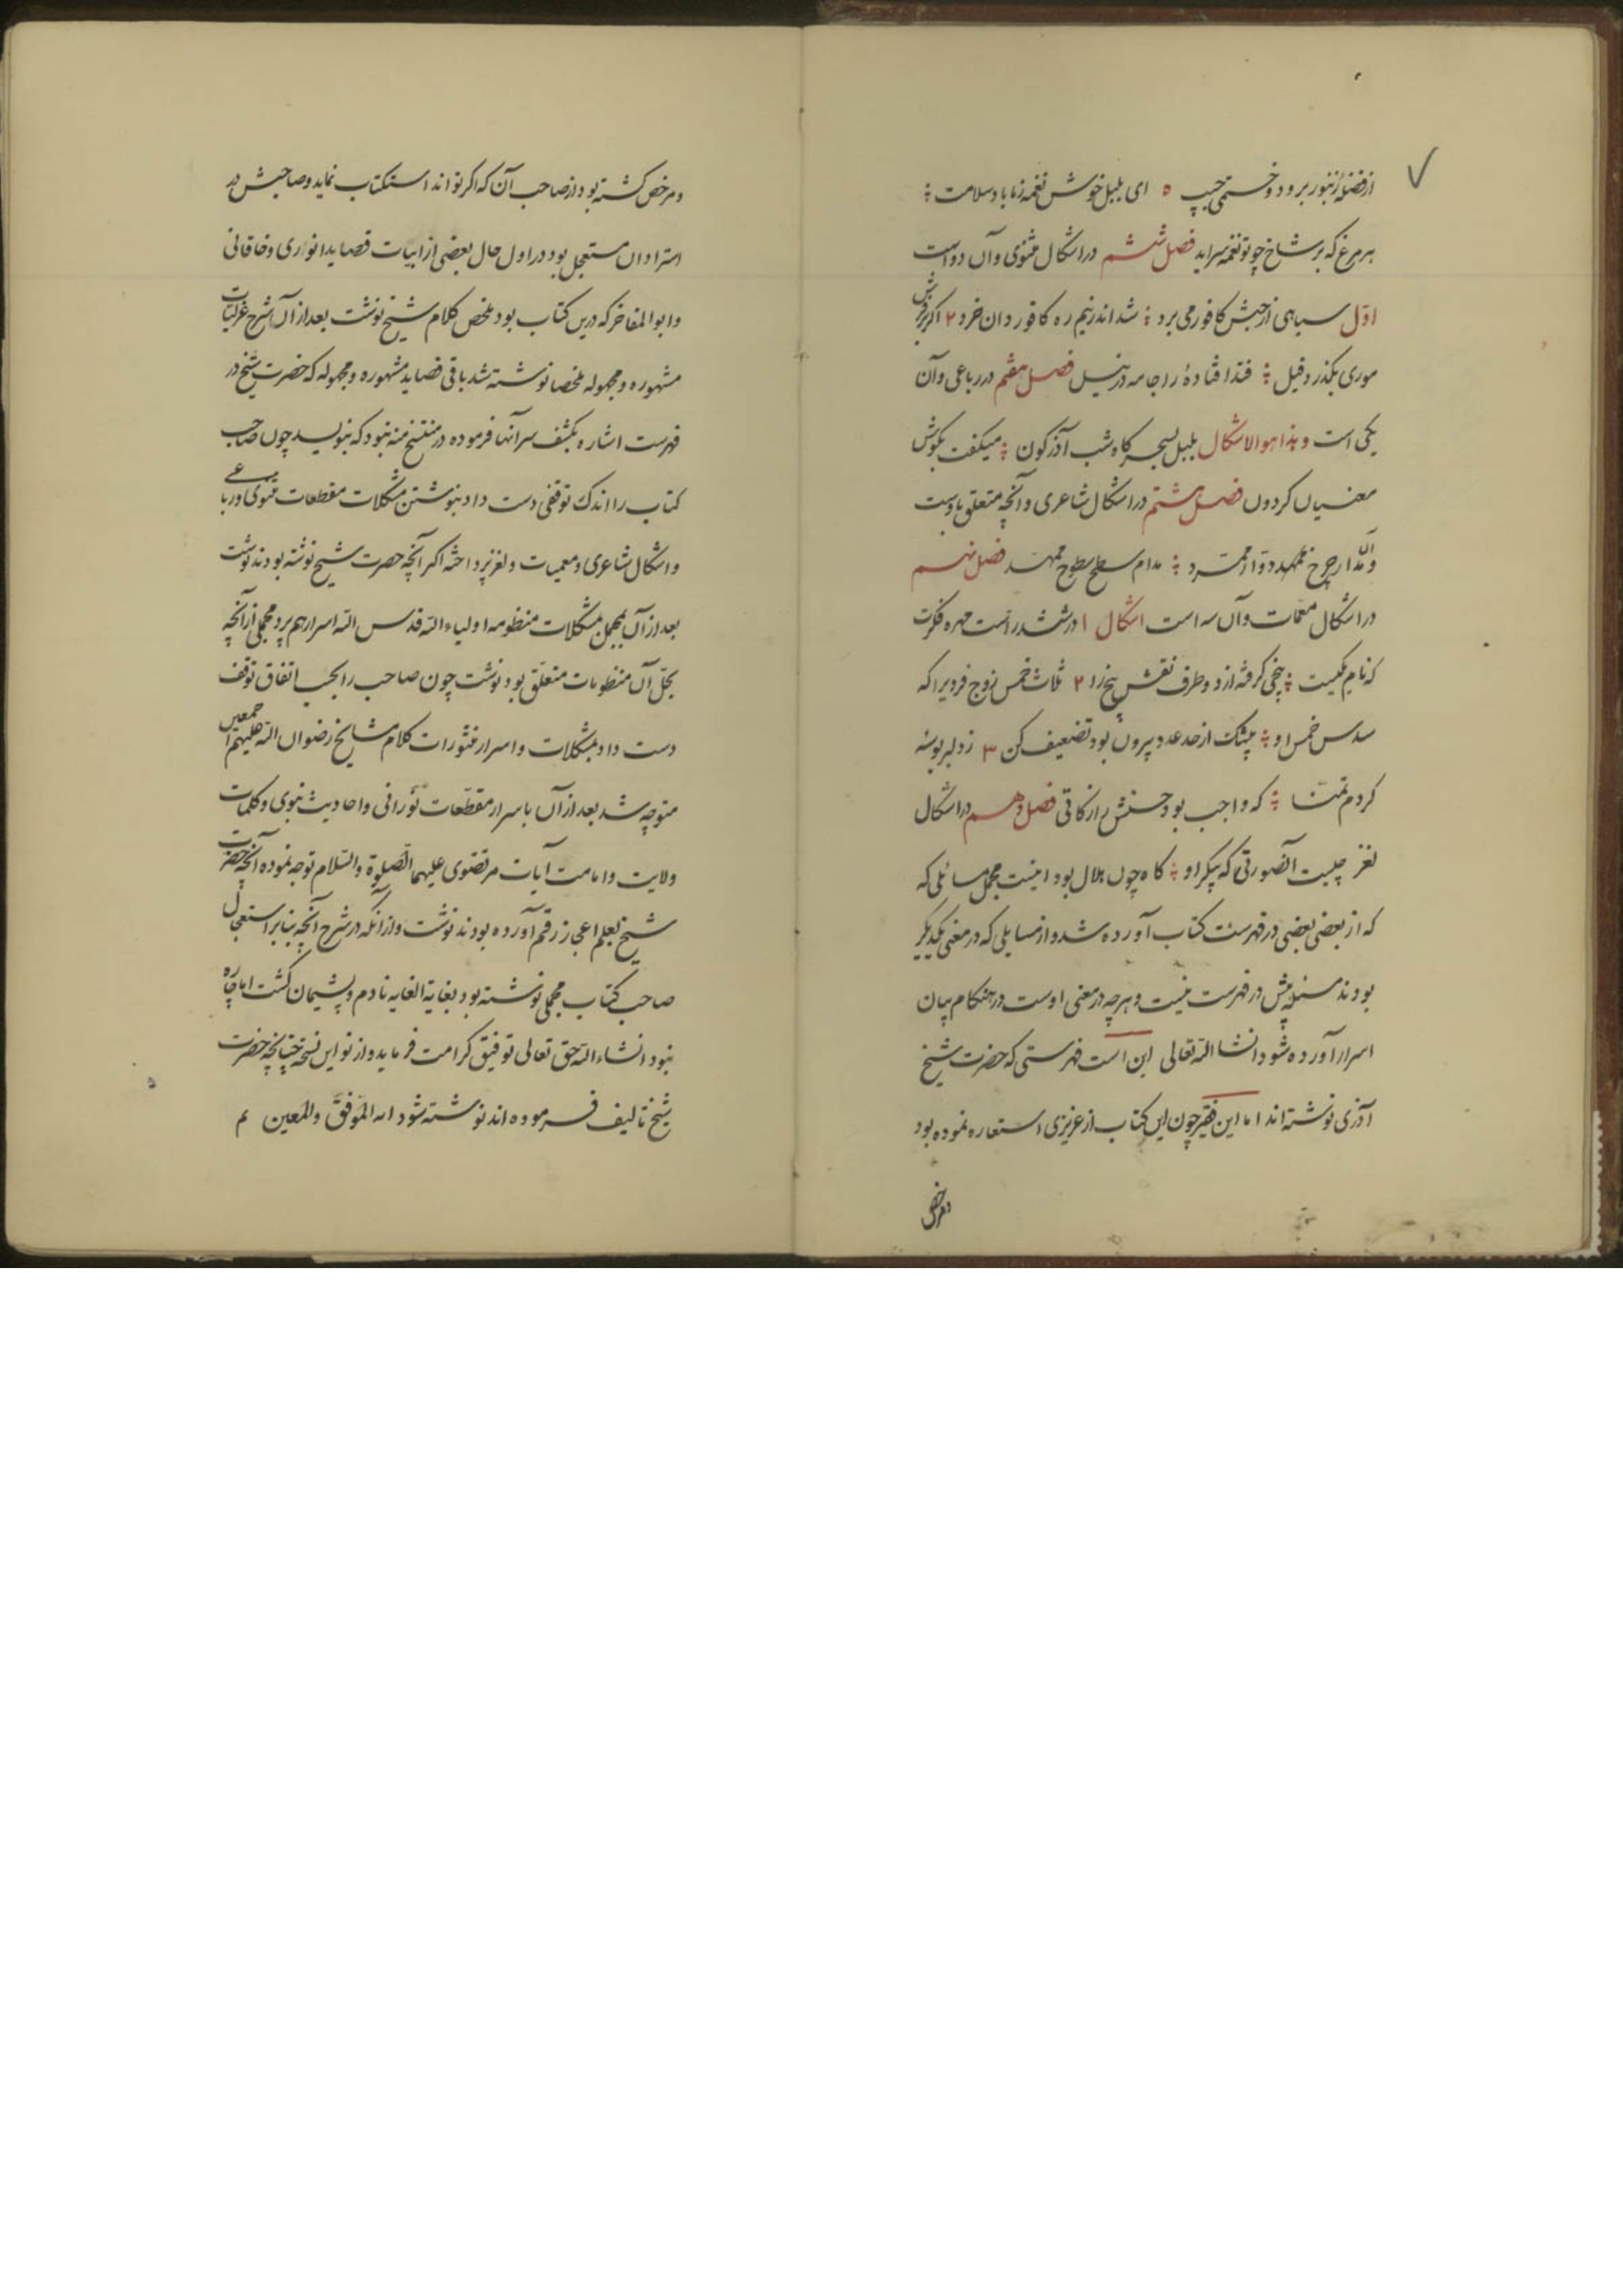 از فضلهٔ زنبور برو دوختمی جیب ۵ ای بلبل خوش نغمه زما باد سلامت ؛
هر مرغ که بر شاخ چو تو نغمه سراید فصل ششم در اشکال مثنوی و آن دو است
اوّل سیاهی از حبش کافور می برد ؛ شد اندر نیم ره کافور دان خرد ۲ اگر بر
موری بگذرد فیل ؛ فتد افتادهٔ را جامه در نیل فصل هفتم در رباعی و آن
یکی است و هذا هو الاشکال بلبل بسحر گاه شب آذرگون ؛ میگفت بگوش
مغنیان گردون فصل هشتم در اشکال شاعری و آنچه متعلق باوست
مدام سطح سطوح ممهد فصل نهم
در اشکال معمّات و آن سه است اشکال ۱ در ششدر است مهره فکرت
که نام کیست ؛ پنجی گرفته از دو طرف نقش پنج را ۲ ثلاث خمس زوج فرد برا که
سدس خمس او ؛ بیشک از حد عدد بیرون بود تضعیف کن ۳ ز دلبر بوسهٔ
کردم تمنّا ؛ که واجب بود حسنش را زکاتی فصل دهم در اشکال
لغز چیست آنصورتی که پیکر او ؛ گاه چون هلال بود اینست مجمل مسائلی که
که از بعضی بعضی در فهرست کتاب آورده شد و از مسایلی که در معنی یکدیگر
بودند مسئله پیش در فهرست نیست و هرچه در معنی اوست در هنگام بیان
اسرار آورده شود انشا الله تعالی این است فهرستی که حضرت شیخ
آذری نوشته اند اما این فقیر چون این کتاب از عزیزی استعاره نموده بود
و مرخص
و مرخص گشته بود از صاحب آن که اگر تواند استکتاب نماید و صاحبش در
استرداد آن مستعجل بود در اول حال بعضی از ابیات قصاید انوری و خاقانی
و ابو المفاخر که درین کتاب بود ملخص کلام شیخ نوشت بعد از آن شرح غزلیات
مشهوره و مجهوله ملخصا نوشته شد باقی قصاید مشهوره و مجهوله که حضرت شیخ در
فهرست اشاره بکشف سر آنها فرموده در منتسخ منه نبود که بنویسد چون صاحب
کتاب را اندک توقفی دست داد بنوشتن مشکلات مقطعات مثنوی و رباعی
و اشکال شاعری و معمیات و لغز پرداخته اکثر آنچه حضرت شیخ نوشته بودند نوشت
بعد از آن بمجمل مشکلات منظومه اولیاء الله قدس الله اسرارهم برد مجملی از آنچه
بحلّ آن منظومات متعلّق بود نوشت چون صاحب را بحسب اتفاق توقف
دست داد بمشکلات و اسرار منثورات کلام مشایخ رضوان الله علیهم اجمعین
متوجه شد بعد از آن باسرار مقطّعات نورانی و احادیث نبوی و کلمات
ولایت و امامت آیات مرتضوی علیهما الصلوة والسّلام توجه نموده آنچه حضرت
شیخ بقلم اعجاز رقم آورده بودند نوشت و از آنکه در شرح آنچه بنابر استعجال
صاحب کتاب مجملی نوشته بود بغایة الغایه نادم و پشیمان گشت اما چاره
نبود انشاء الله حق تعالی توفیق کرامت فرماید و از نو این نسخه چنانچه حضرت
شیخ تالیف فرموده اند نوشته شود انه الموفق والمعین م